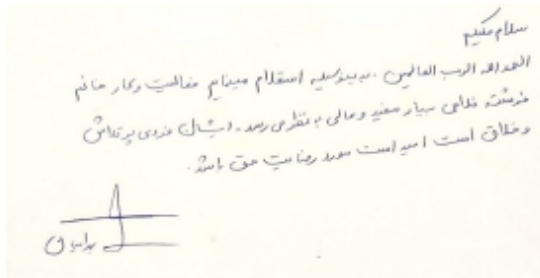 سلام علیکم
الحمدالله الرب العالمین . بدینوسیله استعلام مینمایم فعالیت و کار خانم
فرشته غلامی بسیار مفید و عالی به نظر می رسد . ایشان فردی پرتلاش
و خلاق است امید است مورد رضایت حق باشد .